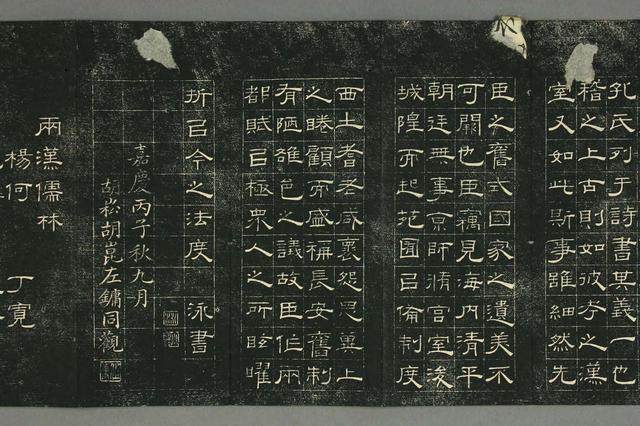 孔氏列于詩書其義一也
稽之上古則如彼考之漢
室又如此斯事雖細然先
臣之舊式國家之遺美不
可闕也臣竊見海內清平
朝廷無事京師脩宮室浚
城隍而起苑囿㠯備制度
西土耆老咸褱怨思冀上
之睠顧而盛稱長安舊制
有陋雒邑之議故臣作兩
都賦㠯極眾人之所眩曜
折㠯今之法度 泳書
嘉慶丙子秋九月
胡崧胡崑左鏞同觀
兩漢儒林
楊何 丁寬